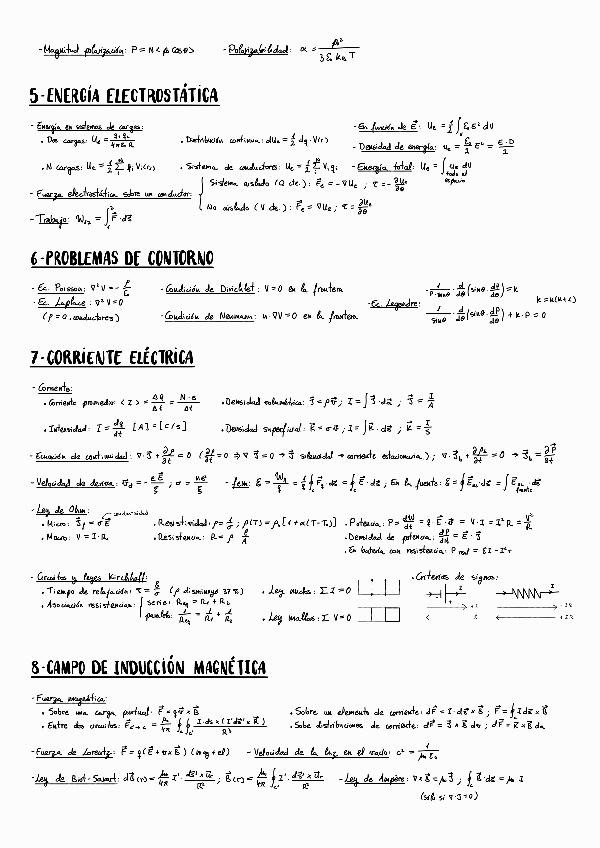 - Magnitud polarización: P = N < p cosθ >   - Polarizabilidad: α = p² / 3ε₀ k_B T
5-ENERGÍA ELECTROSTÁTICA
- Energía en sistemas de cargas:   - En función de E⃗: Ue = 1/2 ∫ ε₀ E² dV
• Dos cargas: Ue = q₁q₂ / 4πε₀R   • Distribución continua: dUe = 1/2 dq · V(r)   - Densidad de energía: ue = ε₀/2 E² = E·D/2
• N cargas: Ue = 1/2 Σ qᵢ Vᵢ(rᵢ)   • Sistema de conductores: Ue = 1/2 Σ Vᵢ qᵢ   - Energía total: Ue = ∫ ue dV
todo el espacio
- Fuerza electrostática sobre un conductor:   Sistema aislado (Q cte.): F⃗e = -∇Ue ; τ = -∂Ue/∂θ
No aislado (V cte.): F⃗e = ∇Ue ; τ = ∂Ue/∂θ
- Trabajo: W₁₂ = ∫₁² F⃗ · ds⃗
6-PROBLEMAS DE CONTORNO
- Ec. Poisson: ∇²V = - ρ/ε   - Condición de Dirichlet: V = 0 en la frontera
- Ec. Laplace: ∇²V = 0   - Ec. Legendre:   1/(P·senθ) · d/dθ (sinθ · dP/dθ) = k   k = n(n+1)
(ρ = 0, conductores)   - Condición de Neumann: n · ∇V = 0 en la frontera   1/sinθ · d/dθ (sinθ · dP/dθ) + k · P = 0
7-CORRIENTE ELÉCTRICA
- Corriente:
• Corriente promedio: < I > = ΔQ/Δt = N·e/Δt   • Densidad volumétrica: J⃗ = ρv⃗ ; I = ∫ J⃗ · da⃗ ; J⃗ = I/A
• Intensidad: I = dq/dt [A] = [C/s]   • Densidad superficial: K⃗ = σv⃗ ; I = ∫ K⃗ · dl ; K⃗ = I/S
- Ecuación de continuidad: ∇ · J⃗ + ∂ρ/∂t = 0 (∂ρ/∂t = 0 ⇒ ∇ J⃗ = 0 → J⃗ solenoidal → corriente estacionaria) ; ∇ · J⃗b + ∂ρb/∂t = 0 → J⃗b = ∂P⃗/∂t
- Velocidad de deriva:   - fem:   En la fuente:
- Ley de Ohm:
conductividad
• Micro: J⃗f = σE⃗   • Resistividad: ρ = 1/σ ; ρ(T) = ρ₀ [1 + α(T-T₀)]   • Potencia: P = dW/dt = q · E⃗ · v⃗ = V · I = I²R = V²/R
• Macro: V = I·R   • Resistencia: R = ρ l/A   • Densidad de potencia: dP/dV = E⃗ · J⃗
• En batería con resistencia: P real = εI - I²r
- Circuitos y leyes Kirchhoff:   • Criterios de signos:
• Tiempo de relajación: τ = ε/σ (ρ disminuye 37%)   • Ley nudos: Σ I = 0
• Asociación resistencias:   serie: Req = R₁ + R₂
paralelo: 1/Req = 1/R₁ + 1/R₂   • Ley mallas: Σ V = 0
8-CAMPO DE INDUCCIÓN MAGNÉTICA
- Fuerza magnética:
• Sobre una carga puntual: F⃗ = q v⃗ × B⃗   • Sobre un elemento de corriente: dF⃗ = I · ds⃗ × B⃗ ; F⃗ = ∮ I ds⃗ × B⃗
• Entre dos circuitos:   • Sobe distribuciones de corriente: dF⃗ = J⃗ × B⃗ dv ; dF⃗ = K⃗ × B⃗ da
- Fuerza de Lorentz: F⃗ = q(E⃗ + v × B⃗) (mag + el)   - Velocidad de la luz en el vacío: c² = 1/μ₀ε₀
- Ley de Biot-Savart: dB⃗(r) = μ₀/4π I' · ds⃗' × u⃗r/R² ; B⃗(r) = μ₀/4π ∮ I' · ds⃗' × u⃗r/R²   - Ley de Ampère: ∇ × B⃗ = μ₀J⃗ ; ∮ B⃗ · ds⃗ = μ₀ I
(sólo si ∇·J = 0)